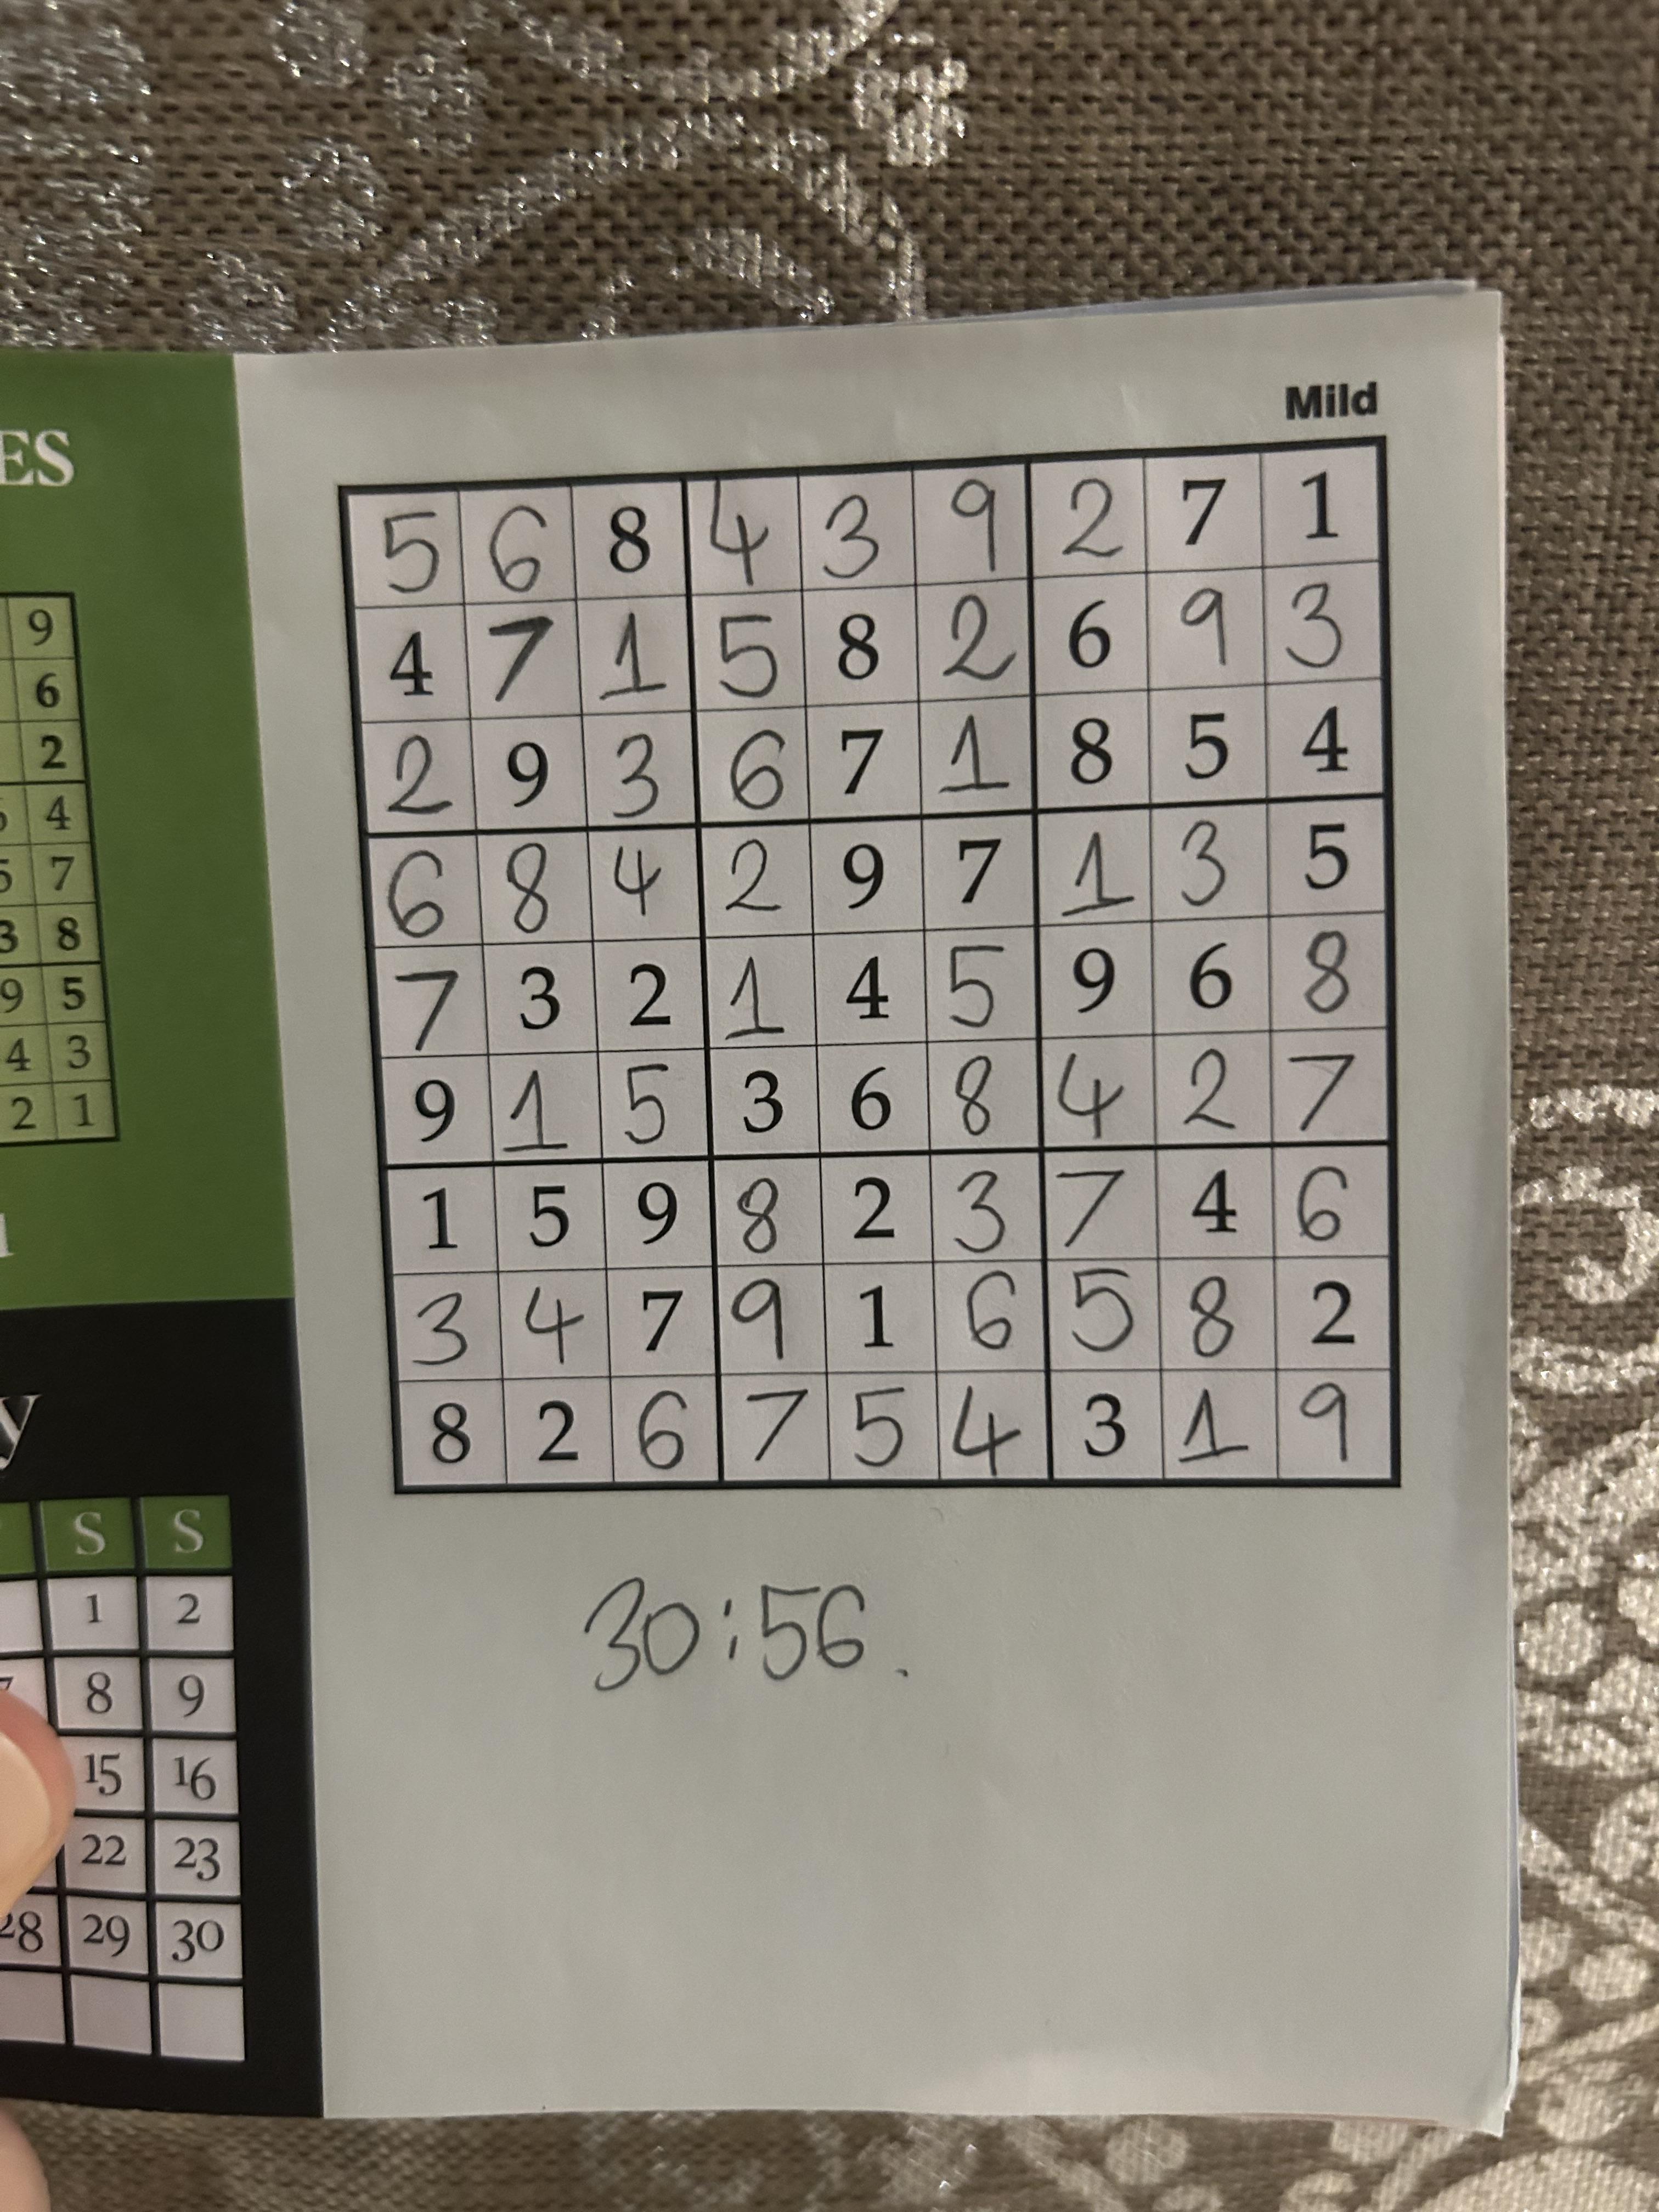 ES
9
6
2
4
5 7
3 8
9 5
4 3
2 1
y
S S
1 2
8 9
15 16
22 23
28 29 30
Mild
5 6 8 4 3 9 2 7 1
4 7 1 5 8 2 6 9 3
2 9 3 6 7 1 8 5 4
6 8 4 2 9 7 1 3 5
7 3 2 1 4 5 9 6 8
9 1 5 3 6 8 4 2 7
1 5 9 8 2 3 7 4 6
3 4 7 9 1 6 5 8 2
8 2 6 7 5 4 3 1 9
30:56.